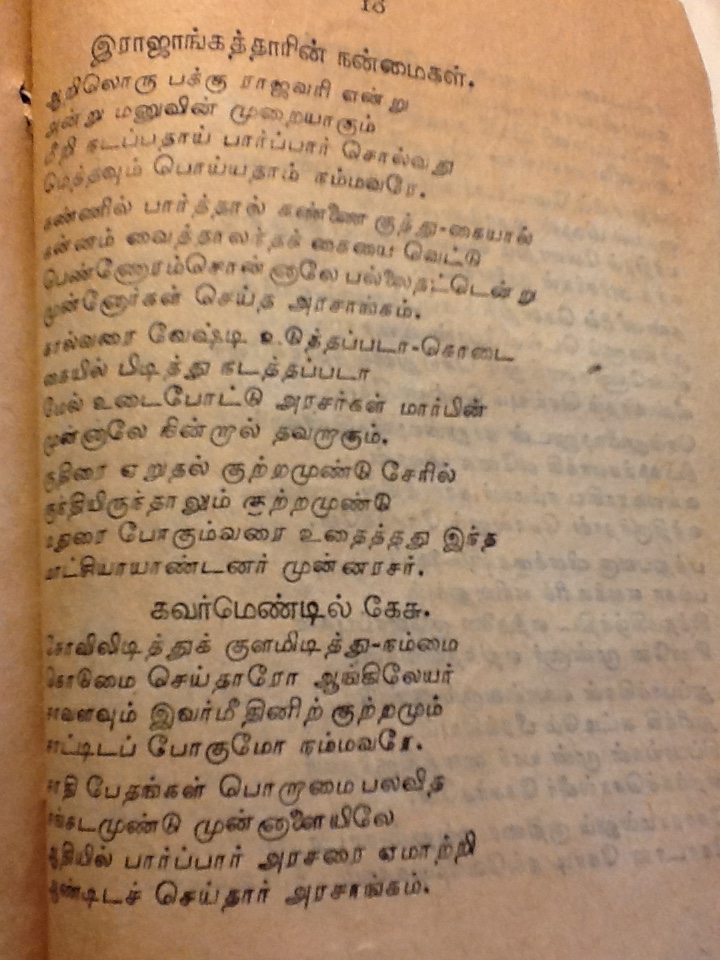 16
இராஜாங்கத்தாரின் நன்மைகள்.
ஆறிலொரு பக்கு ராஜவரி என்று
அன்று மனுவின் முறையாகும்
மீறி நடப்பதாய் பார்ப்பார் சொல்வது
மெத்தவும் பொய்யதாம் நம்மவரே.
கண்ணில் பார்த்தால் கண்ணை குத்து-கையால்
கன்னம் வைத்தாலந்தக் கையை வெட்டு
பெண்ணோரம்சொன்னாலே பல்லைதட்டென்று
முன்னோர்கள் செய்த அரசாங்கம்.
கால்வரை வேஷ்டி உடுத்தப்படா-கொடை
கையில் பிடித்து நடத்தப்படா
மேல் உடைபோட்டு அரசர்கள் மார்பின்
முன்னாலே நின்றால் தவறாகும்.
குதிரை ஏறுதல் குற்றமுண்டு சேரில்
குந்தியிருந்தாலும் குற்றமுண்டு
மதுரை போகும்வரை உதைத்தது இந்த
மாட்சியாயாண்டனர் முன்னரசர்.
கவர்மெண்டில் கேசு.
கோவிலிடித்துக் குளமிடித்து-நம்மை
கொடுமை செய்தாரோ ஆங்கிலேயர்
இவர்மீதினிற் குற்றமும்
போகுமோ நம்மவரே.
சாதி பேதங்கள் பொறாமை பலவித
சங்கடமுண்டு முன்னாளையிலே
ஆதியில் பார்ப்பார் அரசரை ஏமாற்றி
ஆண்டிடச் செய்தார் அரசாங்கம்.